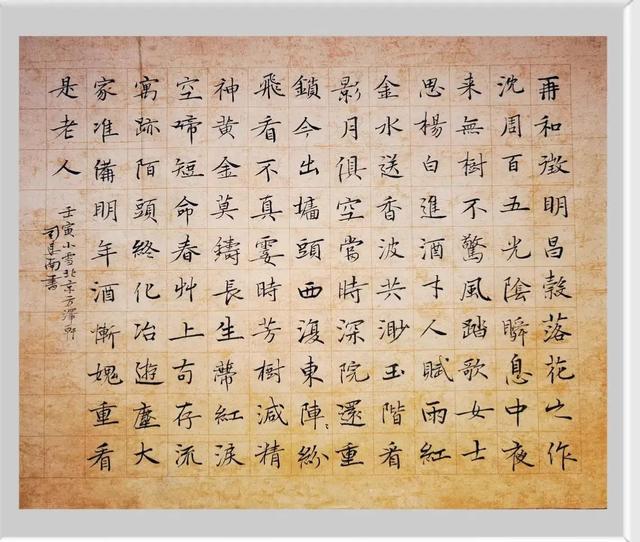 再和徵明昌穀落花之作
沈周百五光陰瞬息中夜
来無樹不驚風踏歌女士
思楊白進酒才人賦雨紅
金水送香波共渺玉階看
影月俱空當時深院還重
鎖今出墻頭西復東陣〻紛
飛看不真霎時芳樹減精
神黄金莫鑄長生蔕紅淚
空啼短命春艸上苟存流
寓跡陌頭終化冶遊塵大
家准備明年酒慚愧重看
是老人
壬寅小雪北京方澤邸
司馬南書